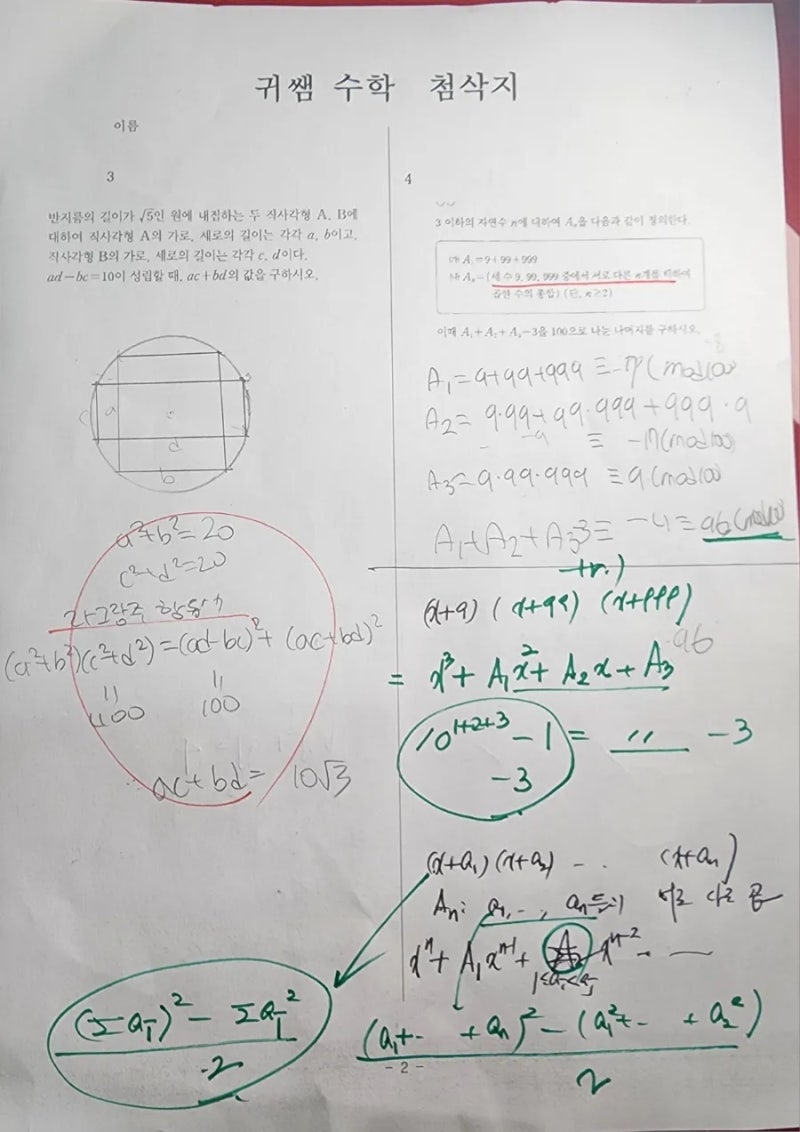 귀쌤 수학 첨삭지
이름
3
반지름의 길이가 √5인 원에 내접하는 두 직사각형 A, B에
대하여 직사각형 A의 가로, 세로의 길이는 각각 a, b이고,
직사각형 B의 가로, 세로의 길이는 각각 c, d이다.
ad-bc=10이 성립할 때, ac+bd의 값을 구하시오.
c a d b
a²+b²=20
c²+d²=20
라그랑주 항등식
(a²+b²)(c²+d²)=(ad-bc)²+(ac+bd)²
400 100
ac+bd= 10√3
4
3 이하의 자연수 n에 대하여 Aₙ을 다음과 같이 정의한다.
(가) A₁=9+99+999
(나) Aₙ=(세 수 9, 99, 999 중에서 서로 다른 n개를 택하여
곱한 수의 총합) (단, n≥2)
이때 A₁+A₂+A₃-3을 100으로 나눈 나머지를 구하시오.
A₁=9+99+999≡-17(mod100)
A₂= 9·99+99·999+999·9
-9 ≡ -17(mod100)
A₃=9·99·999 ≡9(mod100)
A₁+A₂+A₃-3≡ -4≡96(mod100)
(x+9) (x+99) (x+999)
96
= x³+A₁x²+A₂x+A₃
10¹⁺²⁺³-1 = 〃 -3
-3
(x+a₁)(x+a₂) - - (x+aₙ)
Aₙ: a₁, -, aₙ들의 서로 다른 곱
xⁿ+A₁xⁿ⁻¹+ A₂ xⁿ⁻² - —
(Σaᵢ)²-Σaᵢ²
2
(a₁+- +aₙ)²-(a₁²+- +a₂²)
2
- 2 -